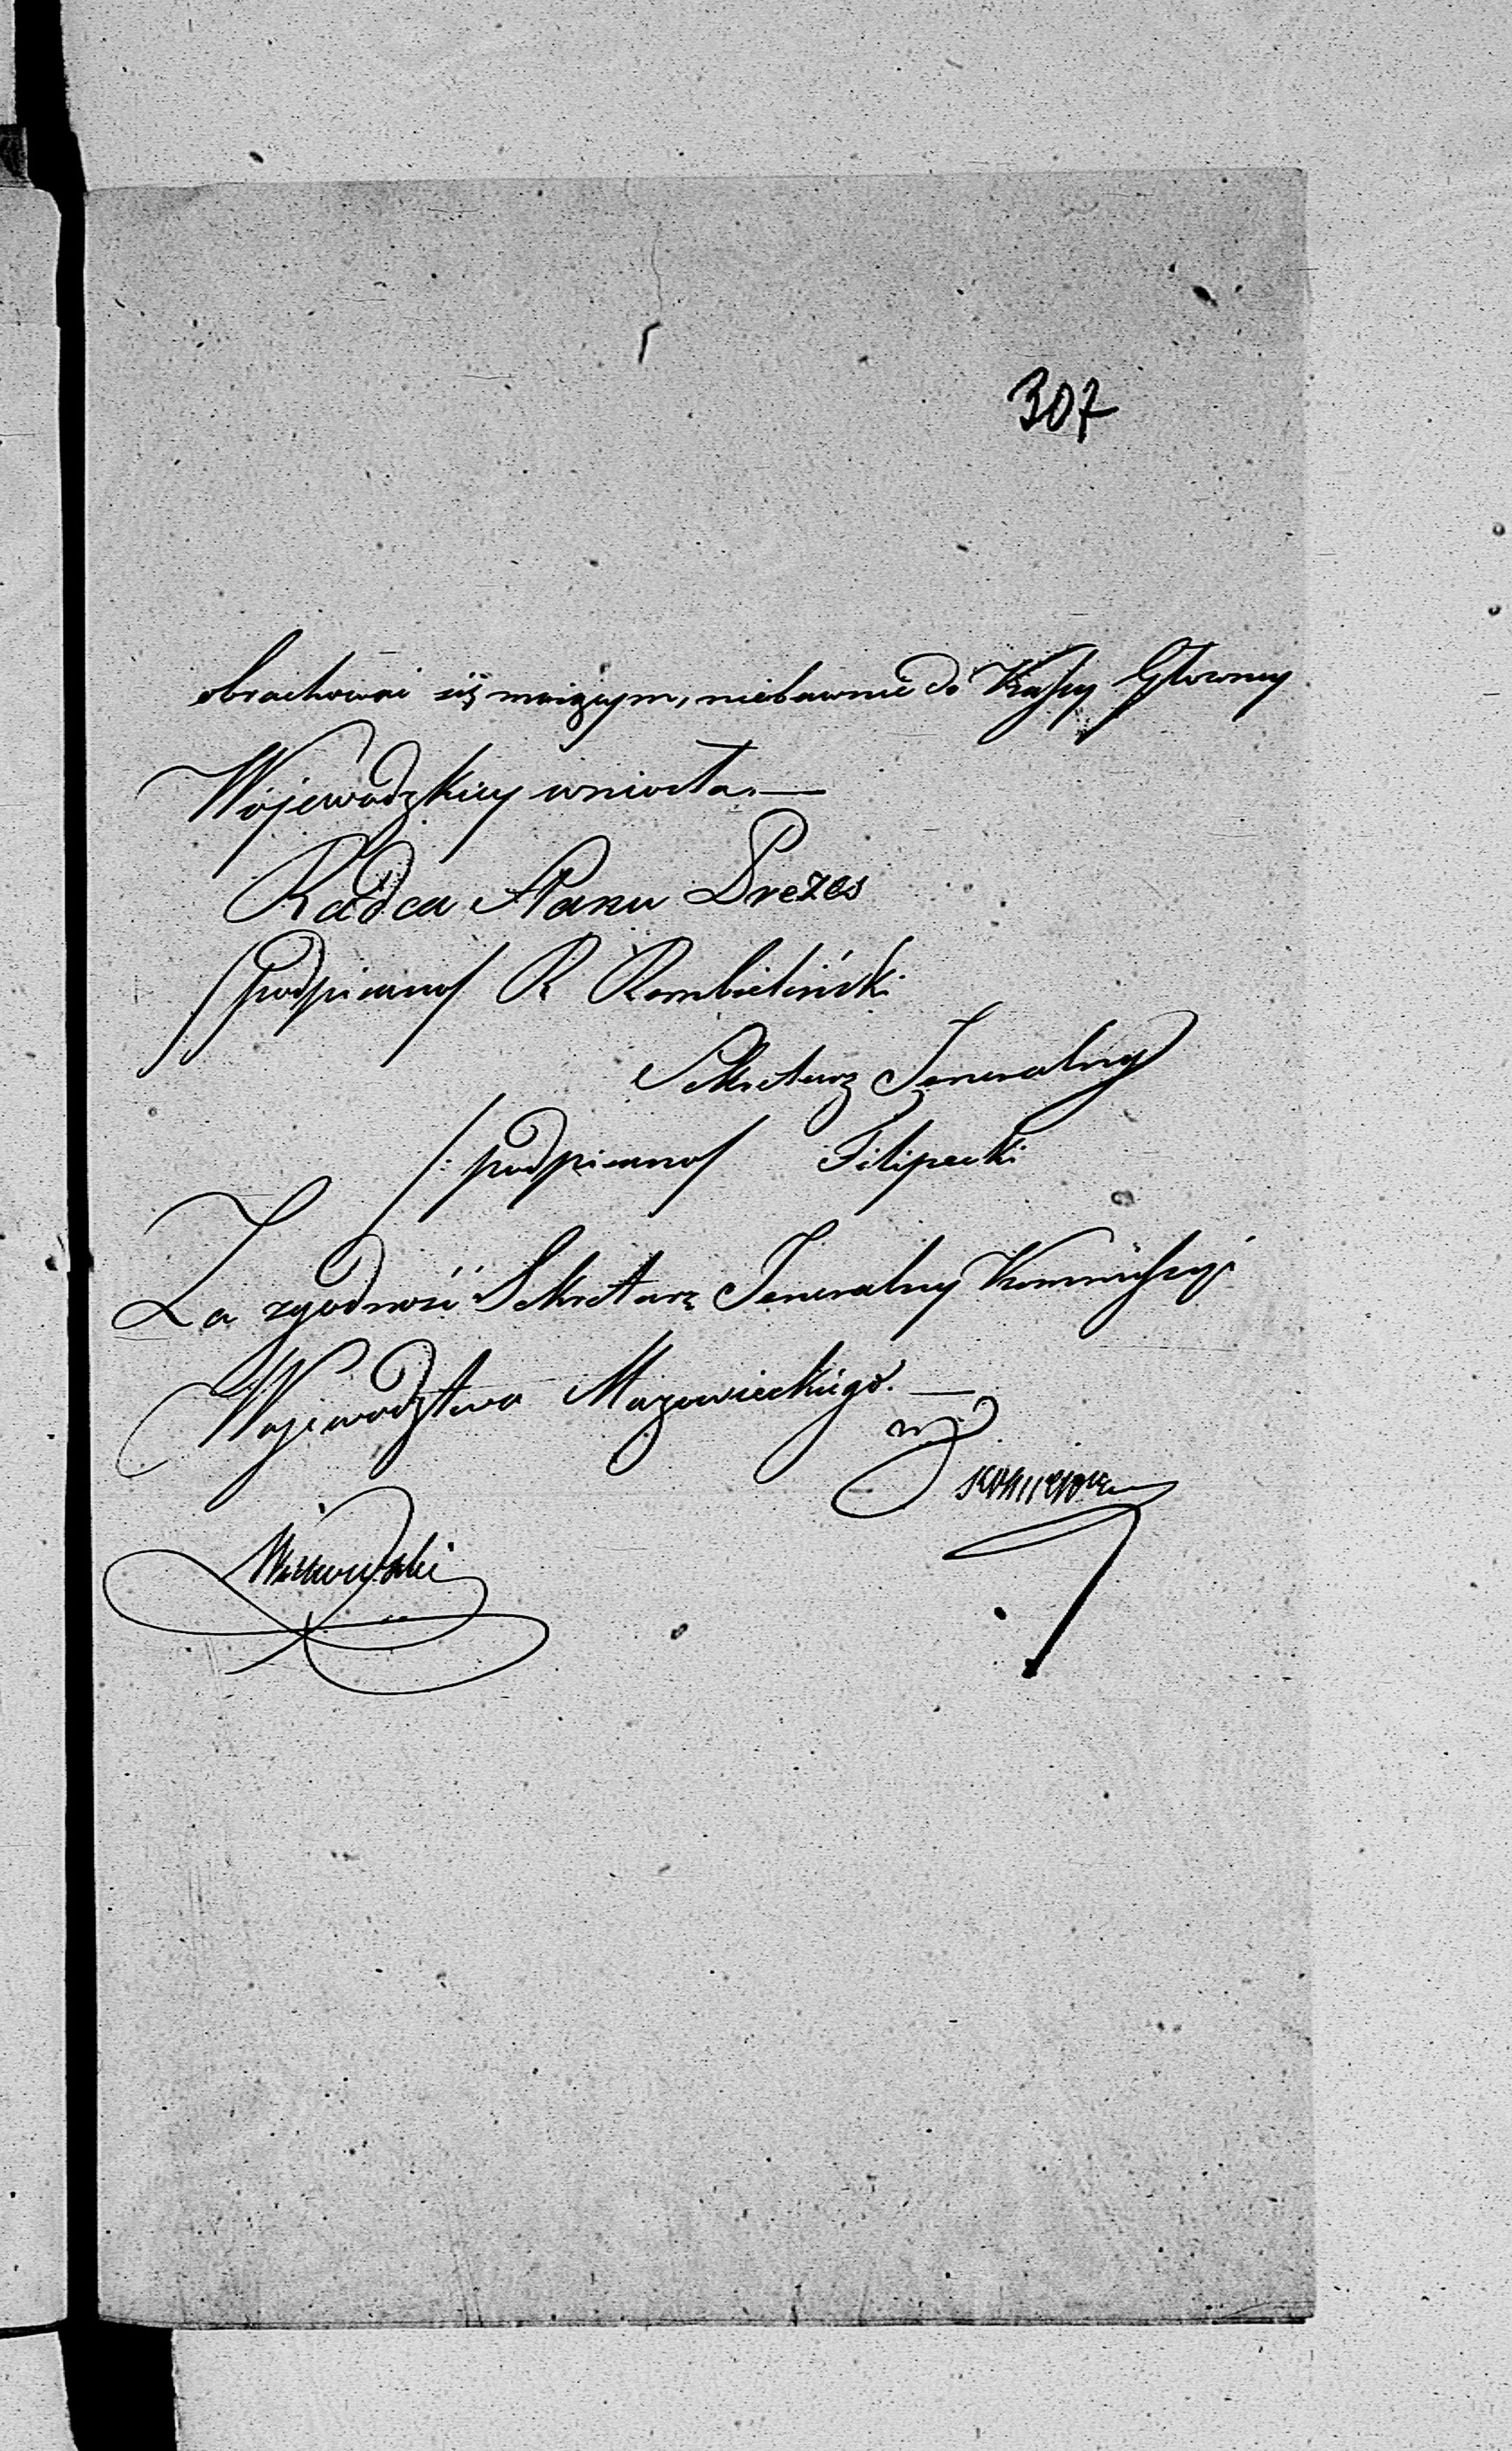 307
obrachować się maiącym, niebawnie do Kassy Głowney
Wojewodzkiey wniosła.—
Radca Stanu Prezes
/podpisano/ R Rembieliński
Sekretarz Jeneralny
/: podpisano/ Filipecki
Za zgodność Sekretarz Jeneralny Kommissyi
Wojewodztwa Mazowieckiego. —